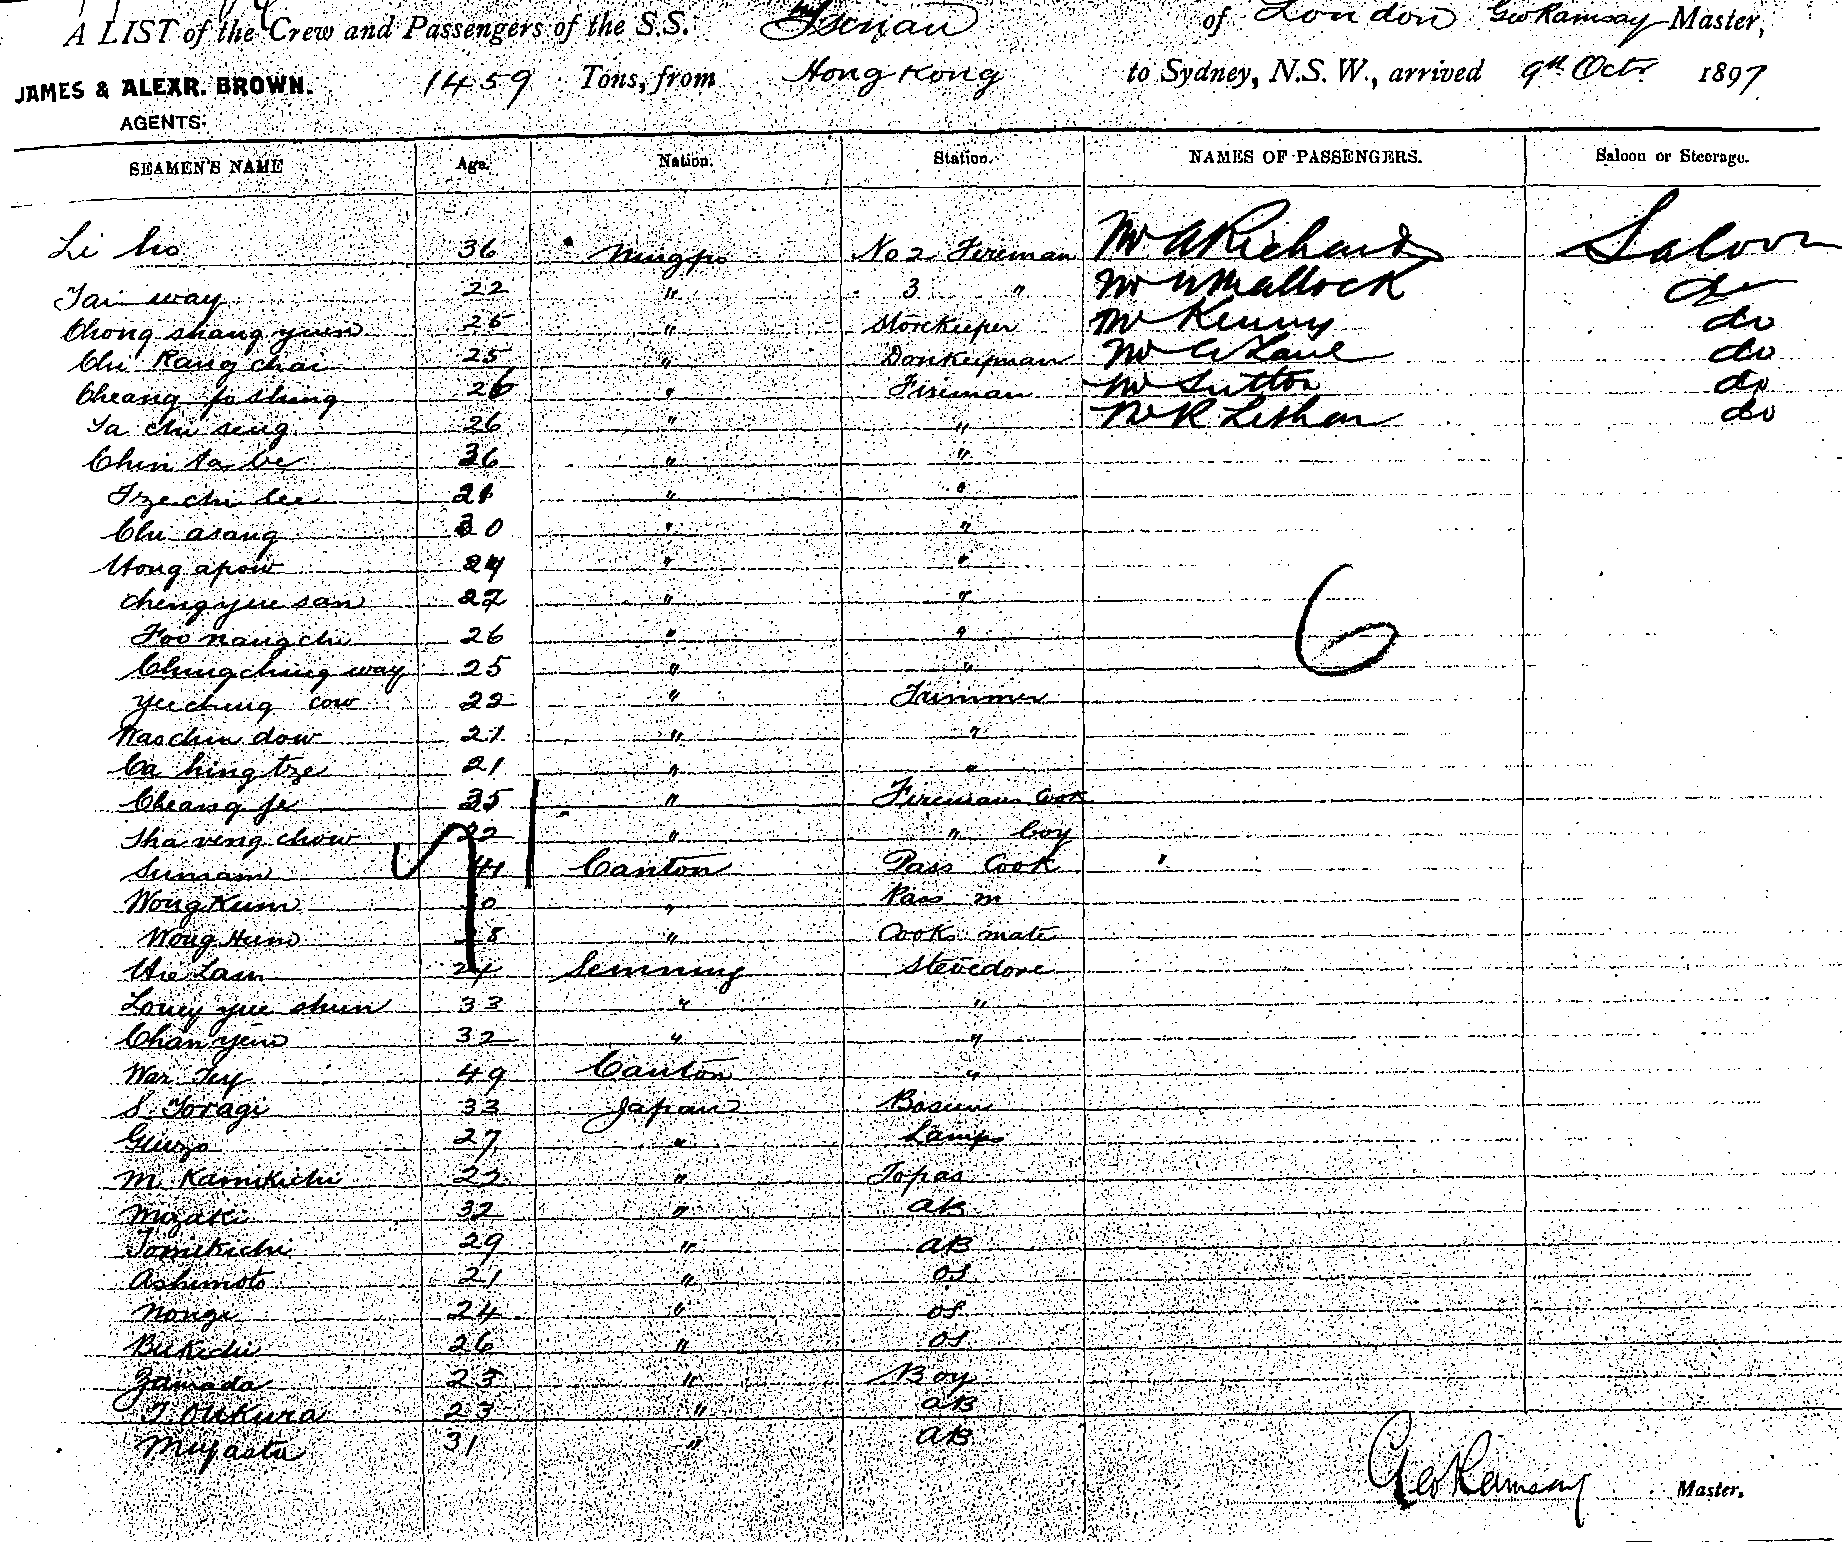 A LIST of the Crew and Passengers of the S.S. Tsinan of London Geo Ramsay Master,
JAMES & ALEXR. BROWN. 1459 Tons, from Hong Kong to Sydney, N.S.W., arrived 9th Oct. 1897
AGENTS.
SEAMEN'S NAME Age. Nation. Station. NAMES OF PASSENGERS. Saloon or Steerage.
Li ho 36 Ningpo No 2 Fireman Mr A Richards Saloon
Tai way 22 " 3 " Mr W Mallock do
Chong shang yuen 26 " Storekeeper Mr Kenny do
Chi Kang chai 25 " Donkeyman Mr Lane do
Cheang fo shing 26 " Fireman Mr Sutton do
Ta chi sing 26 " " Mr R Lethan do
Chin ta be 36 " "
Tze chi lee 21 " "
Chi asang 20 " "
Hong apow 24 " "
Cheng yee san 27 " "
Foo nang chi 26 " "
Ching ching way 25 " "
Yee ching cow 22 " Trimmer
Waschin dow 21 " "
Ca hing tze 21 " "
Cheang fe 35 " Firemans Cook
Sha ving chow 22 " " boy
Sunsam 41 Canton Pass Cook
Wong Kum " Pass m
Wong Hum 8 " Cooks mate
Hie Lam 24 Semning Stevedore
Louey yee shun 33 " "
Chan yein 32 " "
War Fey 49 Canton "
S. Toragi 33 Japan Bosun
Ginzo 27 " Lamps
M. Kamikichi 22 " Topas
Mizaki 32 " AB
Tomekichi 29 " AB
Ashimoto 21 " OS
Nongi 24 " OS
Bukichi 26 " OS
Yamada 25 " Boy
T. Okura 23 " AB
Miyasta 31 " AB
6
Geo Ramsay Master.